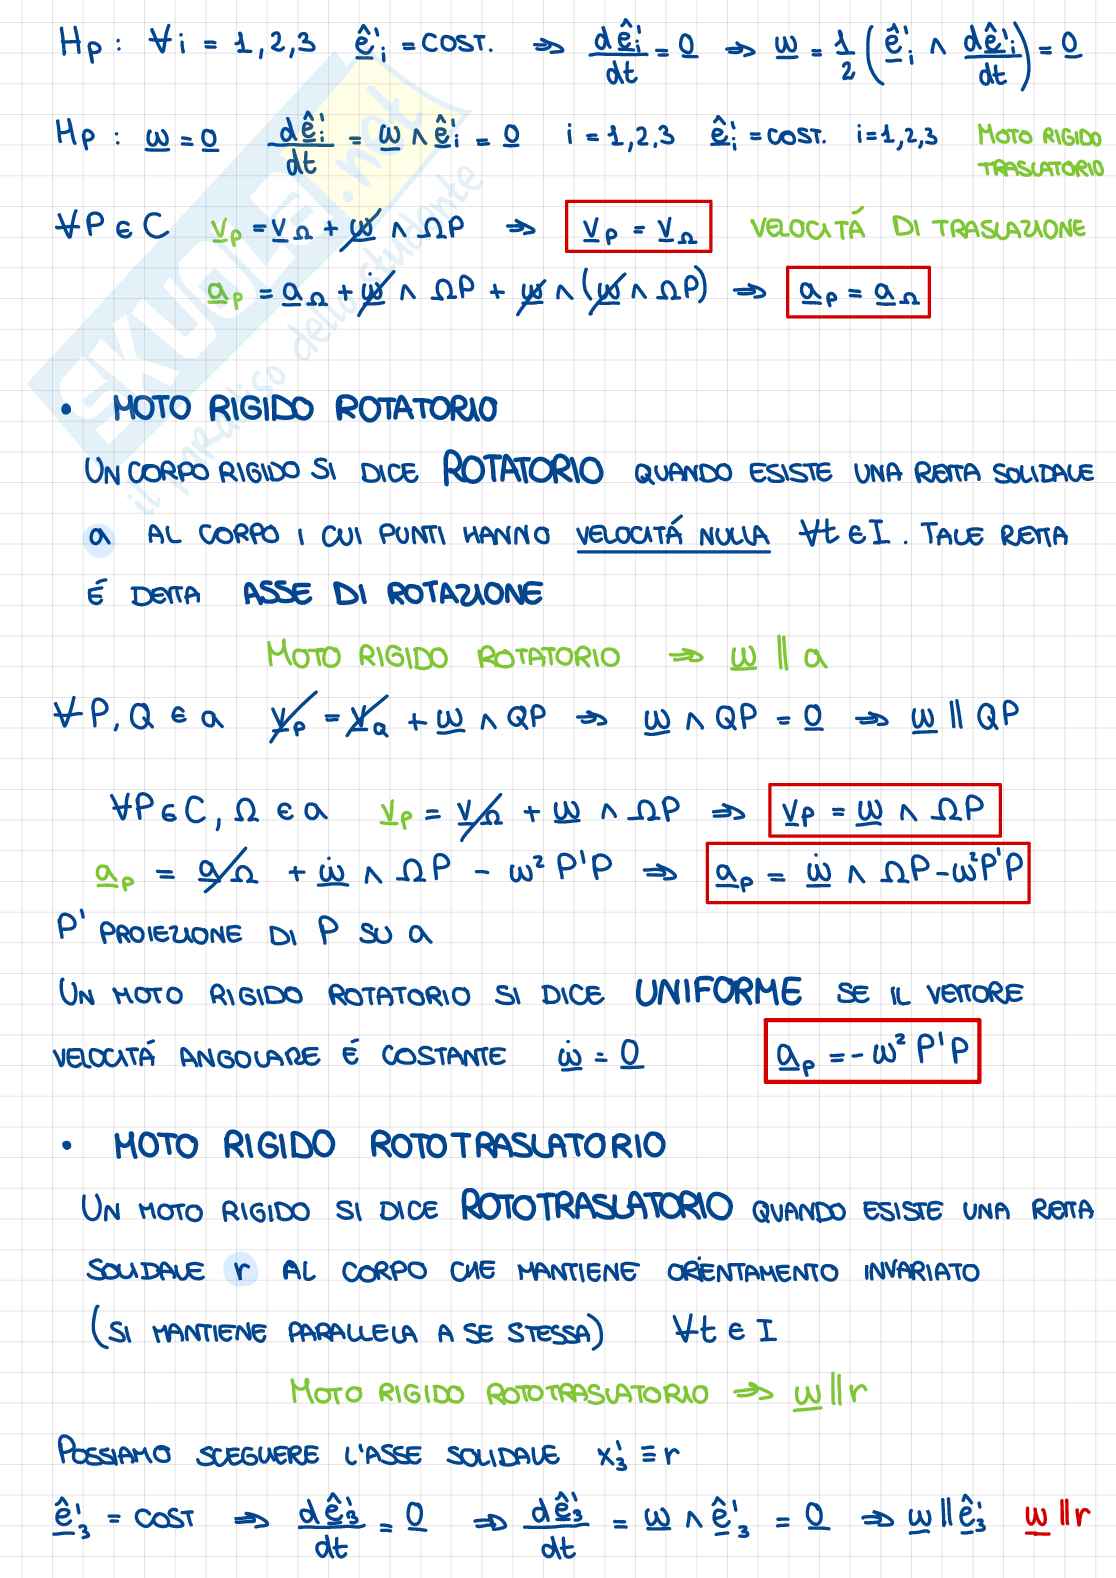 Hp: ∀i = 1,2,3 ê'ᵢ = COST. ⇒ dê'ᵢ/dt = 0 ⇒ ω = 1/2 (ê'ᵢ ∧ dê'ᵢ/dt) = 0
Hp: ω = 0 dê'ᵢ/dt = ω ∧ ê'ᵢ = 0 i = 1,2,3 ê'ᵢ = COST. i=1,2,3 MOTO RIGIDO
TRASLATORIO
∀P ∈ C v_P = v_Ω + ω ∧ ΩP ⇒ v_P = v_Ω VELOCITÁ DI TRASLAZIONE
a_P = a_Ω + ω̇ ∧ ΩP + ω ∧ (ω ∧ ΩP) ⇒ a_P = a_Ω
• MOTO RIGIDO ROTATORIO
UN CORPO RIGIDO SI DICE ROTATORIO QUANDO ESISTE UNA RETTA SOLIDALE
a AL CORPO I CUI PUNTI HANNO VELOCITÁ NULLA ∀t ∈ I. TALE RETTA
É DETTA ASSE DI ROTAZIONE
MOTO RIGIDO ROTATORIO ⇒ ω ∥ a
∀P, Q ∈ a v_P = v_Q + ω ∧ QP ⇒ ω ∧ QP = 0 ⇒ ω ∥ QP
∀P ∈ C, Ω ∈ a v_P = v_Ω + ω ∧ ΩP ⇒ v_P = ω ∧ ΩP
a_P = a_Ω + ω̇ ∧ ΩP - ω² P'P ⇒ a_P = ω̇ ∧ ΩP - ω² P'P
P' PROIEZIONE DI P SU a
UN MOTO RIGIDO ROTATORIO SI DICE UNIFORME SE IL VETTORE
VELOCITÁ ANGOLARE É COSTANTE ω̇ = 0 a_P = - ω² P'P
• MOTO RIGIDO ROTOTRASLATORIO
UN MOTO RIGIDO SI DICE ROTOTRASLATORIO QUANDO ESISTE UNA RETTA
SOLIDALE r AL CORPO CHE MANTIENE ORIENTAMENTO INVARIATO
(SI MANTIENE PARALLELA A SE STESSA) ∀t ∈ I
MOTO RIGIDO ROTOTRASLATORIO ⇒ ω ∥ r
POSSIAMO SCEGLIERE L'ASSE SOLIDALE x'₃ ≡ r
ê'₃ = COST ⇒ dê'₃/dt = 0 ⇒ dê'₃/dt = ω ∧ ê'₃ = 0 ⇒ ω ∥ ê'₃ ω ∥ r
SKUOLA.net
il paradiso dello studente